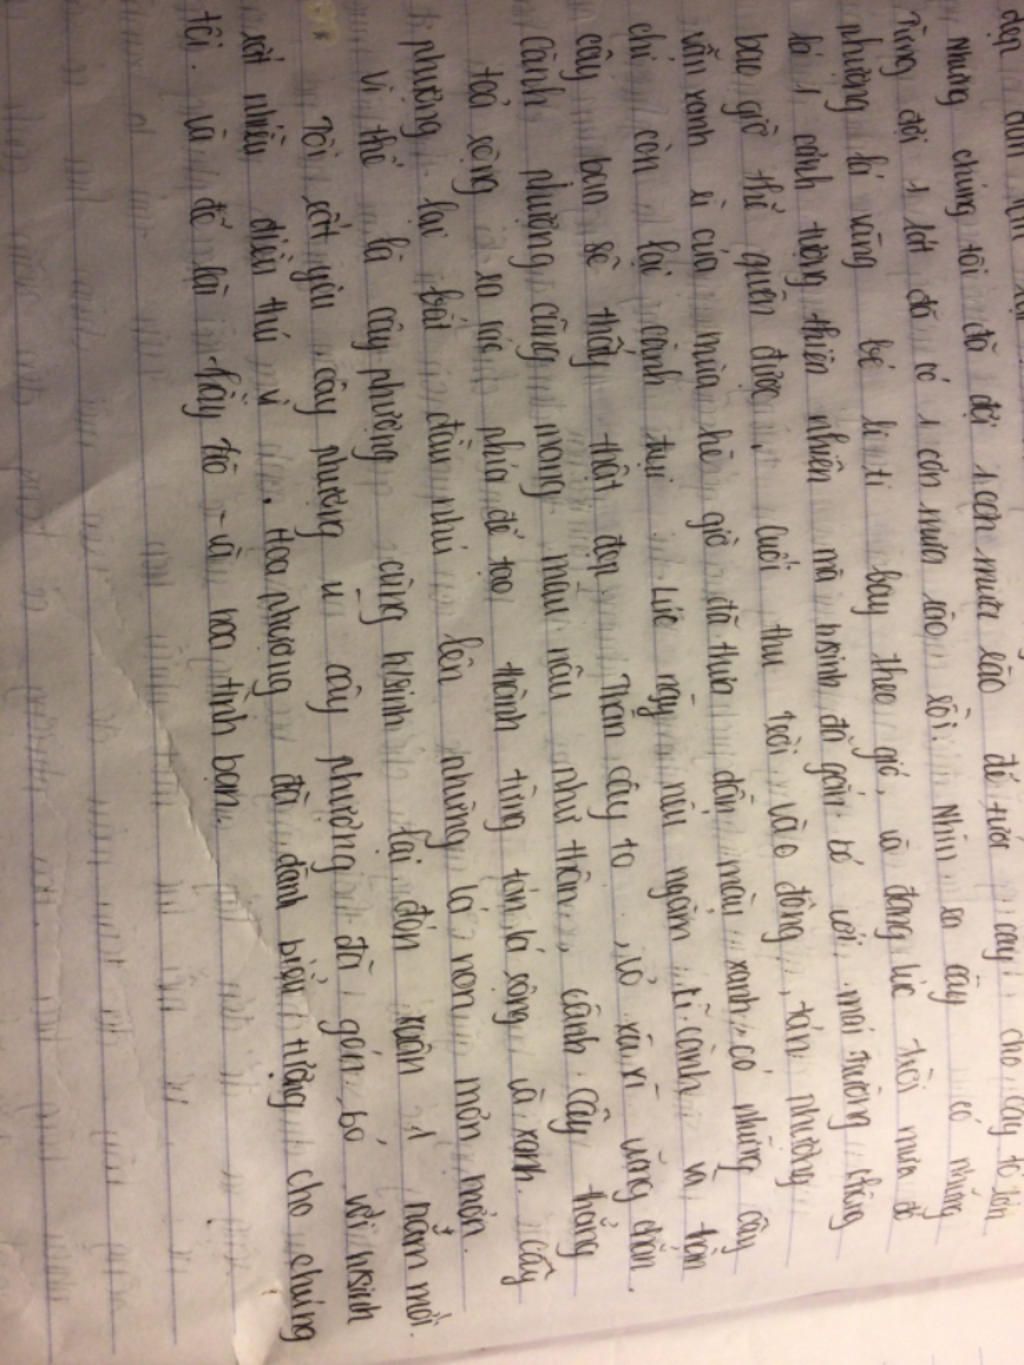 đẹp
Nhưng chúng tôi đã đợi 1 cơn mưa rào để tưới cây, cho cây to lớn
Từng đợi 1 lát đã có 1 cơn mưa rào rồi. Nhìn ra cây có những
phượng lá vàng bé li ti bay theo gió, và đang lúc trời mưa đổ
lá 1 cảnh tượng thiên nhiên mà hsinh đã gắn bó với mái trường chẳng
bao giờ thể quên được, cuối thu trời vào đông, tán phượng
vẫn xanh rì của mùa hè giờ đã thưa dần màu xanh, có những cây
chỉ còn lại cành trụi. Lúc này nếu ngắm kĩ cành và thân
cây bạn sẽ thấy thật đẹp. Thân cây to, vỏ xù xì vững chắn.
Cành phượng cũng mang màu nâu như thân, cành cây thẳng
toả rộng ra các phía để tạo thành từng tán lá rộng và xanh. Cây
phượng lại bắt đầu nhú lên những lá non mơn mởn.
Vì thế là cây phượng cùng h/sinh lại đón xuân 1 năm mới.
Tôi rất yêu cây phượng vì cây phượng đã gắn bó với hsinh
rất nhiều điều thú vị. Hoa phượng đã dành biểu tượng cho chúng
tôi. và để lại thầy trò và hoa tình bạn.